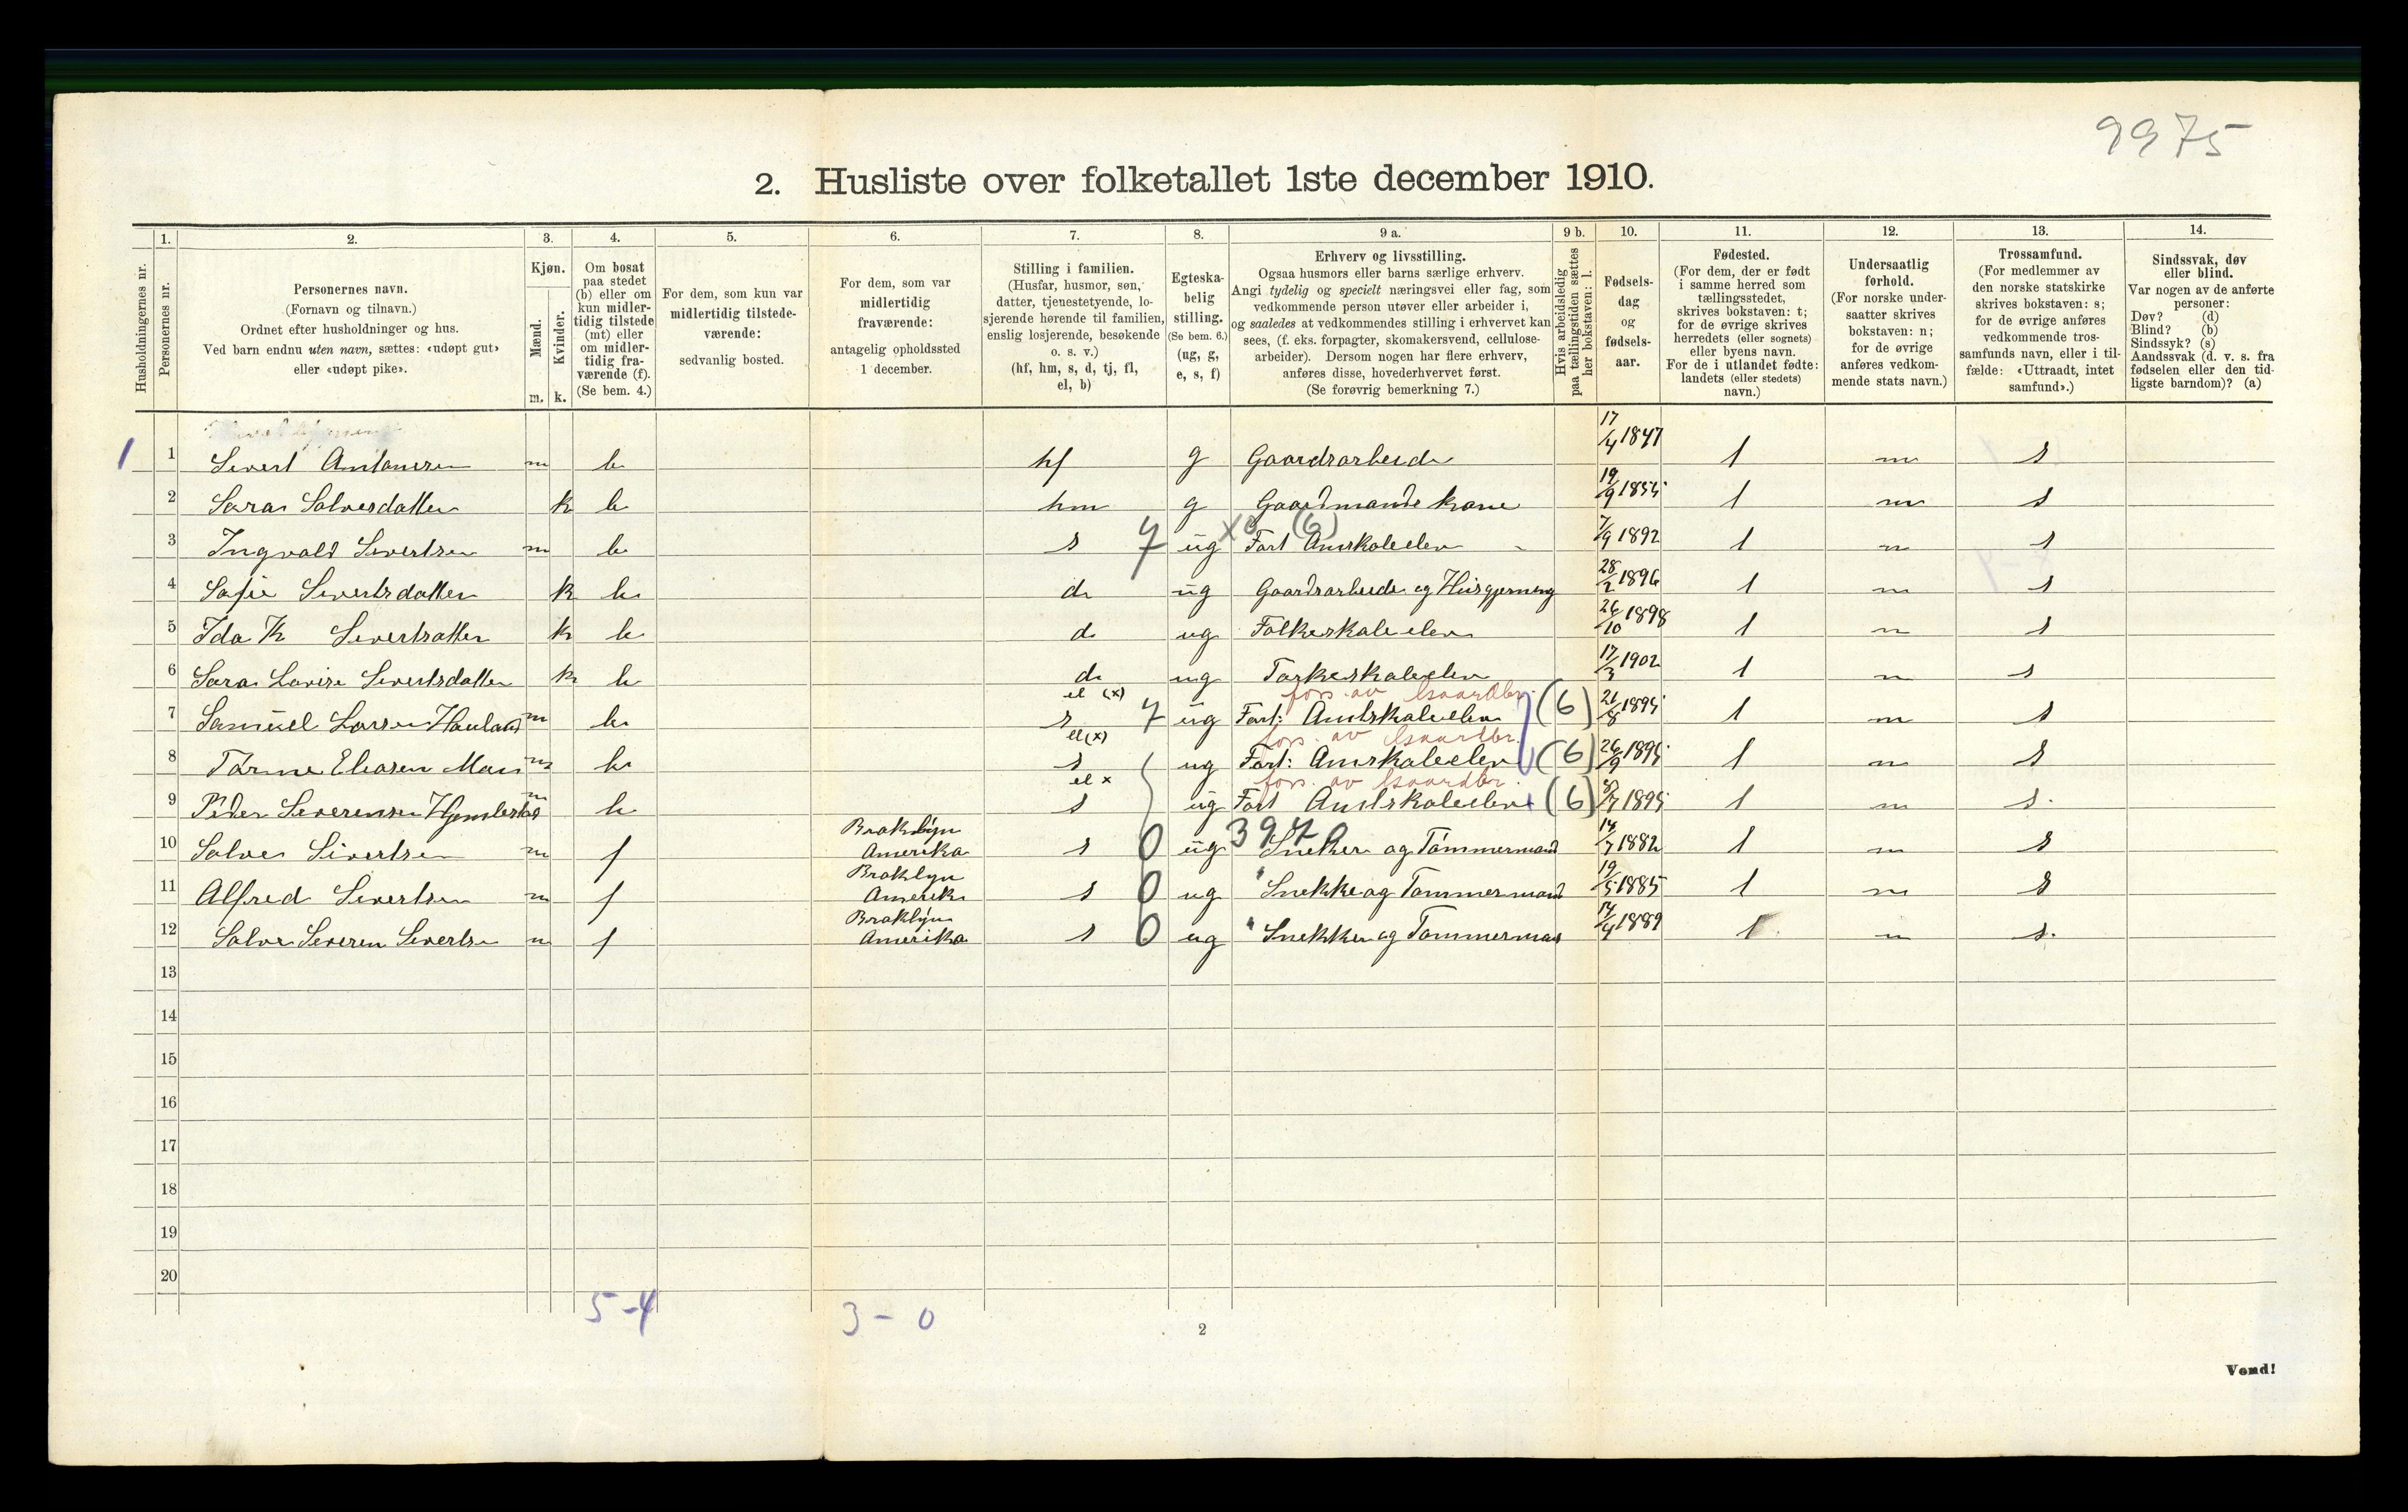 9975
2. Husliste over folketallet 1ste december 1910.
Husholdningernes nr.
1. Personernes nr.
2. Personernes navn.
(Fornavn og tilnavn.)
Ordnet efter husholdninger og hus.
Ved barn endnu uten navn, sættes: «udøpt gut»
eller «udøpt pike».
3. Kjøn.
Mænd. m.
Kvinder. k.
4. Om bosat
paa stedet
(b) eller om
kun midler-
tidig tilstede
(mt) eller
om midler-
tidig fra-
værende (f).
(Se bem. 4.)
5. For dem, som kun var
midlertidig tilstede-
værende:
sedvanlig bosted.
6. For dem, som var
midlertidig
fraværende:
antagelig opholdssted
1 december.
7. Stilling i familien.
(Husfar, husmor, søn,
datter, tjenestetyende, lo-
sjerende hørende til familien,
enslig losjerende, besøkende
o. s. v.)
(hf, hm, s, d, tj, fl,
el, b)
8. Egteska-
belig
stilling.
(Se bem. 6.)
(ug, g,
e, s, f)
9 a. Erhverv og livsstilling.
Ogsaa husmors eller barns særlige erhverv.
Angi tydelig og specielt næringsvei eller fag, som
vedkommende person utøver eller arbeider i,
og saaledes at vedkommendes stilling i erhvervet kan
sees, (f. eks. forpagter, skomakersvend, cellulose-
arbeider). Dersom nogen har flere erhverv,
anføres disse, hovederhvervet først.
(Se forøvrig bemerkning 7.)
9 b. Hvis arbeidsledig
paa tællingstiden sættes
her bokstaven: l.
10. Fødsels-
dag
og
fødsels-
aar.
11. Fødested.
(For dem, der er født
i samme herred som
tællingsstedet,
skrives bokstaven: t;
for de øvrige skrives
herredets (eller sognets)
eller byens navn.
For de i utlandet fødte:
landets (eller stedets)
navn.)
12. Undersaatlig
forhold.
(For norske under-
saatter skrives
bokstaven: n;
for de øvrige
anføres vedkom-
mende stats navn.)
13. Trossamfund.
(For medlemmer av
den norske statskirke
skrives bokstaven: s;
for de øvrige anføres
vedkommende tros-
samfunds navn, eller i til-
fælde: «Uttraadt, intet
samfund».)
14. Sindssvak, døv
eller blind.
Var nogen av de anførte
personer:
Døv? (d)
Blind? (b)
Sindssyk? (s)
Aandssvak (d. v. s. fra
fødselen eller den tid-
ligste barndom)? (a)
1 1 Sivert Antonsen m b hf g Gaardsarbeide 17/4 1847 t n s
2 Sara Salvesdatter k b hm g Gaardmands kone 19/9 1854 t n s
3 Ingvald Sivertsen m b s 7 ug Fort Amskoleelev (6) 7/9 1892 t n s
4 Sofie Sivertsdatter k b d ug Gaardsarbeide og Husgjerning 28/2 1896 t n s
5 Ida K Sivertsatter k b d ug Folkeskole elev 26/10 1898 t n s
6 Sara Lovise Sivertsdatter k b d ug Folkeskoleelev 17/3 1902 t n s
el (x) fors. av Gaardbr.
7 Samuel Larsen Haaland m b s 7 ug Fort: Amtskoleelev (6) 26/8 1895 t n s
el (x) fors. av Gaardbr.
8 Tørme Eliasen m b s ug Fort: Amskoleelev (6) 26/9 1895 t n s
el x fors. av Gaardbr.
9 Peder Severensen m b s ug Fort Amtskoleelev (6) 1895 t n s.
10 Salve Sivertsen m f Broklyn Amerika s 0 ug 397 Sneker og Tømmermand 14/7 1882 t n s
11 Alfred Sivertsen m f Broklyn Amerika s 0 ug " Snekke og Tømmermand 19/5 1885 t n s
12 Salve Severen Sivertsen m f Broklyn Amerika s 0 ug " Snekker og Tømmerman 14/4 1889 t n s.
13
14
15
16
17
18
19
20
5-4 3-0
2
Vend!